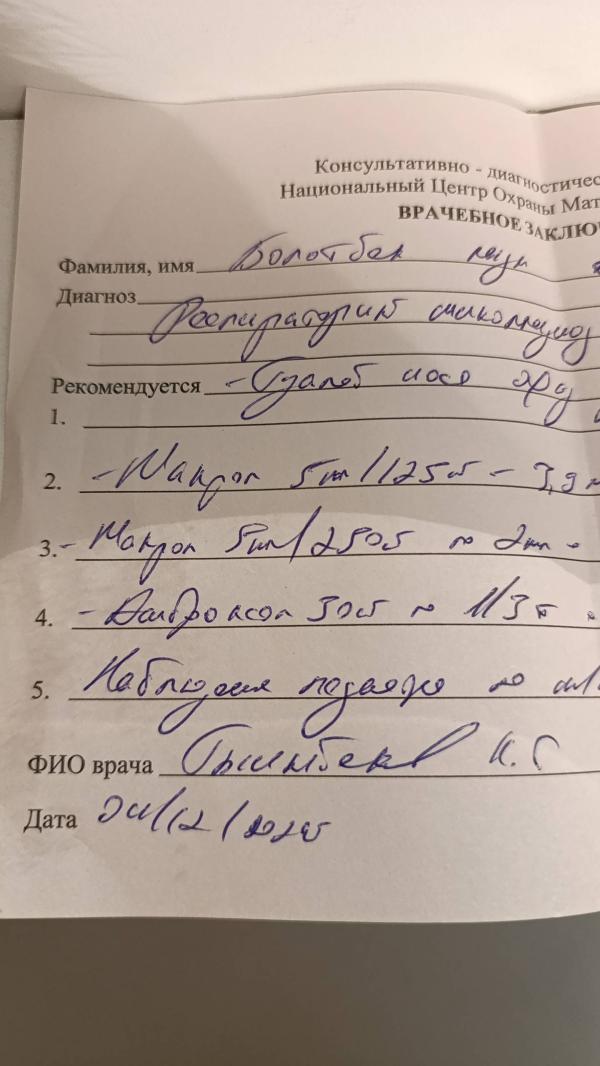 Консультативно - диагностичес
Национальный Центр Охраны Мат
ВРАЧЕБНОЕ ЗАКЛЮ
Фамилия, имя Болотбек
Диагноз
Респираторный микоплазмоз
Рекомендуется -
1.
2. - Макроп 5мл/125мг - 3,9
3. - Макроп 5мл/250мг по 2мл -
4. - Амброксол 30мг по 1/3 т
5. Наблюдения педиатра по м/
ФИО врача К.
Дата /12/2025